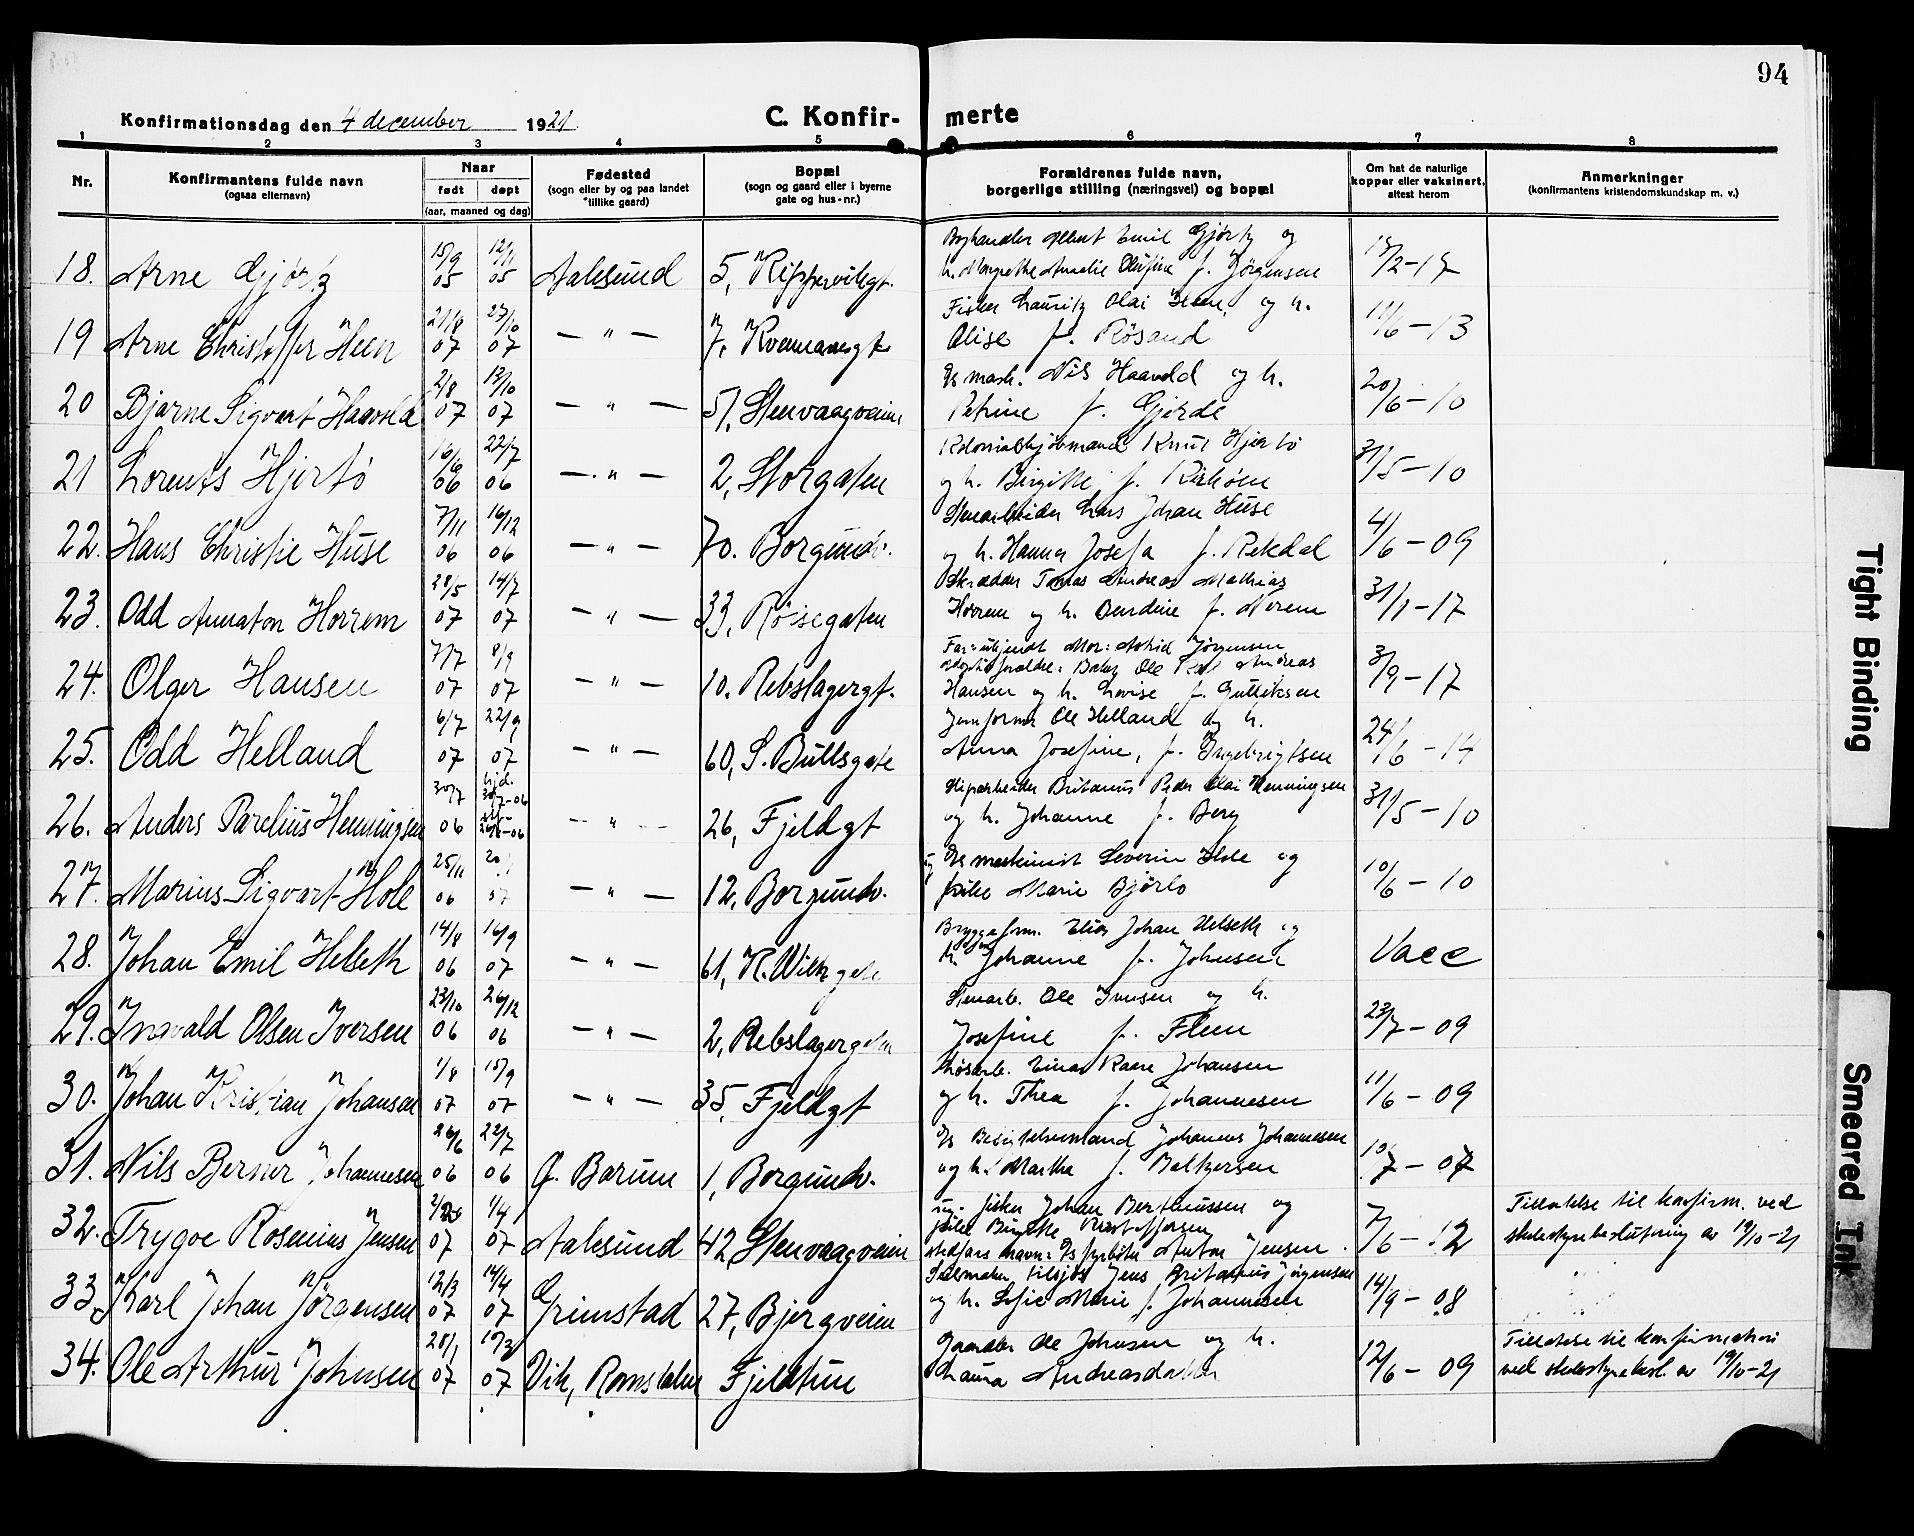 94
Konfirmationsdag den 4 december 1921 C. Konfir- merte
1 2 3 4 5 6 7 8
Nr. Konfirmantens fulde navn (ogsaa efternavn) Naar født døpt (aar, maaned og dag) Fødested (sogn eller by og paa landet tillike gaard) Bopæl (sogn og gaard eller i byerne gate og hus-nr.) Forældrenes fulde navn, borgerlige stilling (næringsvei) og bopæl Om hat de naturlige kopper eller vaksinert, attest herom Anmerkninger (konfirmantens kristendomskundskap m. v.)
Emil Gjørtz og
18. Arne Gjørtz 15/9 05 12/11 05 Aalesund 5, 15/2-17
h. Margrethe Amalie f. Jørgensen
Fisker Lauritz Olai Heen, og h.
19 Arne Christoffer Heen 21/8 07 27/10 07 — " — 7, Kvennaesgt. 11/6-13
Olise f. Røsand
Nils Haavold og h.
20 Bjarne Sigvart Haavold 2/8 07 13/10 07 — " — 51, Stenvaagveien 20/6-10
Petrine f. Gjerde
Kolonialkjøbmand Knut Hjertø
21 Lorents Hjertø 16/6 06 22/7 06 — " — 2, Storgaten 31/5-10
og h. Birgitte f.
Stenarbeider Lars Johan Huse
22. Hans Christie Huse 7/11 06 16/12 06 — " — 70. Borgundv. 4/6-09
og h. Hanna Josefa f. Rekdal
Skrædder Tomas Andreas Mathias
23. Odd Annaton Horrem 28/5 07 14/7 07 — " — 33, Røisegaten 31/1-17
Horrem og h. f. Nerem
Far: ukjendt Mor: Astrid Jørgensen
adoptivforældre: Ole Karl Andreas
24. Olger Hansen 7/7 07 8/9 07 — " — 10. Rebslagergt. 3/9-17
Hansen og h. Lovise f. Gulliksen
Jernformer Ole Helland og h.
25. Odd Helland 6/7 07 22/9 07 — " — 60, S. Bullsgate 24/6-14
Anna Josefine, f. Ingebrigtsen
Britanus Peder Olai Henningsen
26. Anders Parelius Henningsen 30/7 06 hjd. 30/7-06 26/8-06 — " — 26, Fjeldgt 31/5-10
og h. Johanne f. Berg
Ds maskinist Severin Hole og
27. Marius Sigvart Hole 25/11 06 07 — " — 12, Borgundv. 10/6-10
pike Marie Bjørlo
Bryggeform. Elias Johan Helseth og
28. Johan Emil Helseth 14/8 06 16/9 07 — " — 61, K. Wilh gate Vacc
h. Johanne f. Johnsen
Stenarb. Ole Iversen og h.
29. Ingvald Olsen Iversen 23/10 06 26/12 06 — " — 2, Rebslagergaten 23/7-09
Josefine f. Flem
Løsarb. Einar Kaare Johansen
30. Johan Kristian Johansen 1/8 07 15/9 07 — " — 35, Fjeldgt 11/6-09
og h. Thea f. Johannesen
Ds Bestikkelsesmand Johannes Johannesen
31. Nils Berner Johannesen 26/6 06 22/7 06 Ø. Bærum 1, Borgundv. 10/7-07
og h. Martha f. Baltzersen
ug. fisker Johan Berthinussen og
32. Trygve Rosenius Jensen 07 1/4 07 Aalesund 42 Stenvaagveien 7/6-12
pike Birgitte Kristoffersen
stedfars navn: Ds fyrbøter Anton Jensen.
Tilladelse til konfirm. ved
skolestyrebeslutning av 19/10-21
Seilmaker tilsjøs Jens Britanus Jørgensen
33. Karl Johan Jørgensen 12/3 07 14/4 07 Grimstad 27, Bjergveien 14/9-08
og h. Sofie Marie f. Johannesen
Ole Johnsen og h.
34. Ole Arthur Johnsen 28/1 07 10/3 07 Vik, Romsdalen Fjeldtun 12/6-09
Laura Andreasdatter
Tilladelse til konfirmation
ved skolestyrebesl. av 19/10-21
Tight Binding
Smeared Ink